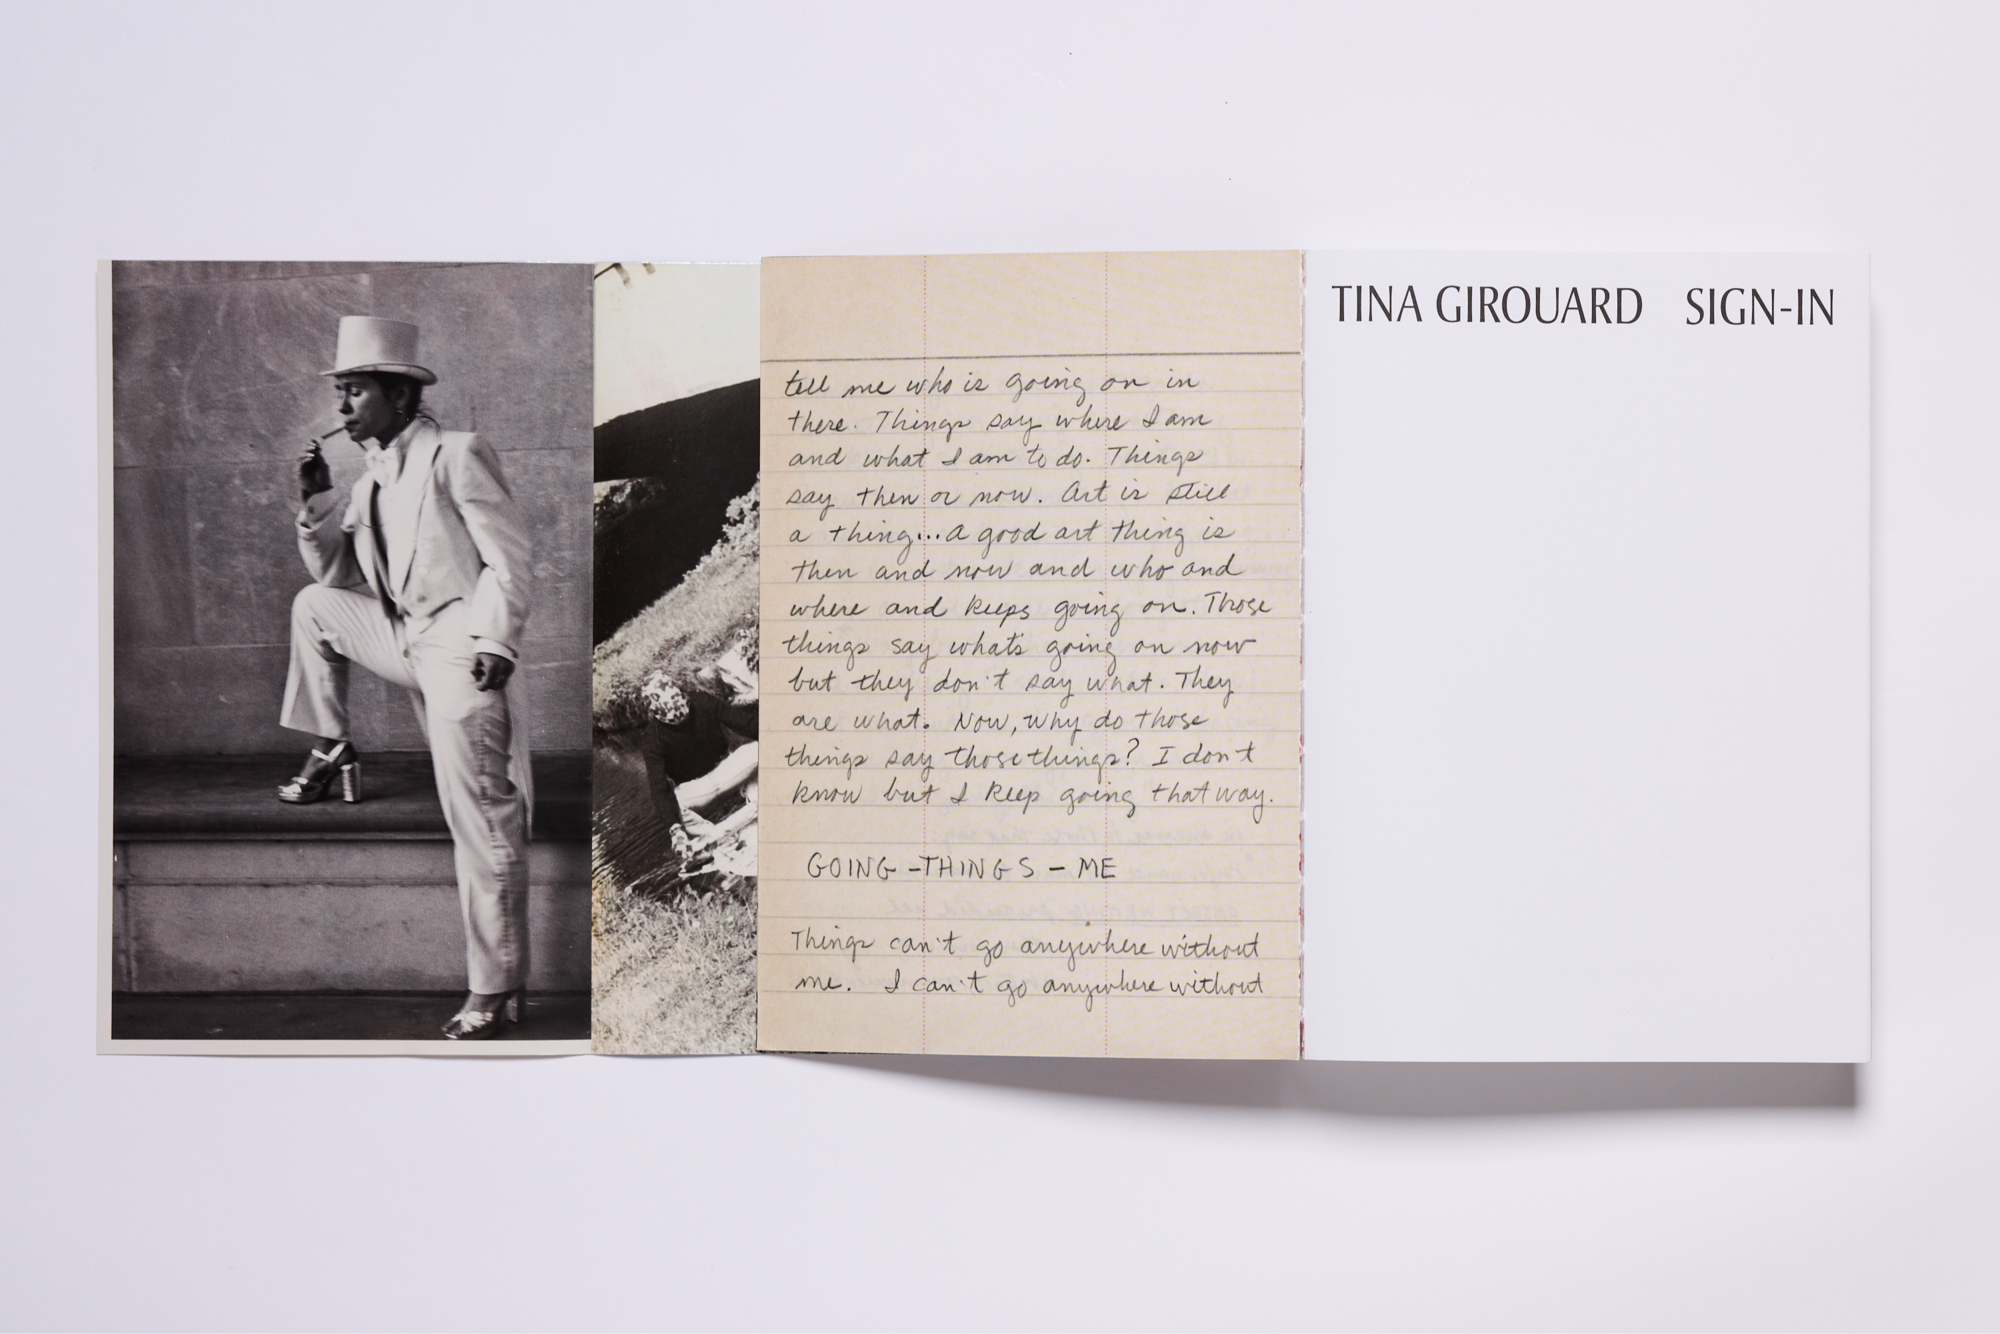 tell me who is going on in
there. Things say where I am
and what I am to do. Things
say then or now. Art is still
a thing...a good art thing is
then and now and who and
where and keeps going on. Those
things say what's going on now
but they don't say what. They
are what. Now, why do those
things say those things? I don't
know but I keep going that way.
GOING-THINGS-ME
Things can't go anywhere without
me. I can't go anywhere without
TINA GIROUARD SIGN-IN